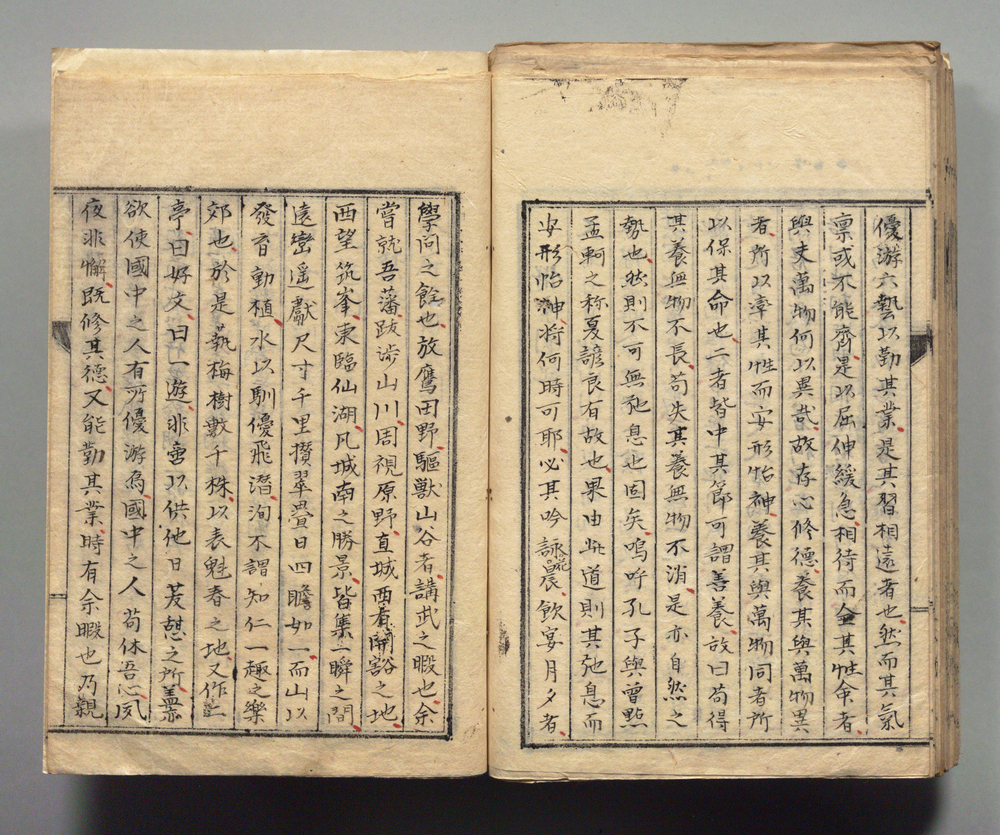 優游六藝以勤其業是其習相遠者也然而其氣
禀或不能齊是以屈伸緩急相待而全其性命者
與夫萬物何以異哉故存心修德養其與萬物異
者所以率其性而安形怡神養其與萬物同者所
以保其命也二者皆中其節可謂善養故曰苟得
其養無物不長苟失其養無物不消是亦自然之
勢也然則不可無弛息也固矣嗚呼孔子與曾點
孟軻之称夏諺良有故也果由此道則其弛息而
安形怡神將何時可耶必其吟詠花晨飲宴月夕者
學問之餘也放鷹田野驅獸山谷者講武之暇也余
嘗就吾藩跋渉山川周視原野直城西有開豁之地
西望筑峯東臨仙湖凡城南之勝景皆集一瞬之間
遠巒遥獻尺寸千里攢翠疊日四瞻如一而山以
發育動植水以馴優飛潛洵不謂知仁一趣之樂
郊也於是蓺梅樹數千株以表魁春之地又作二
亭曰好文曰一遊非啻以供他日茇憩之所蓋亦
欲使國中之人有所優游焉國中之人苟体吾心夙
夜非懈既修其德又能勤其業時有余暇也乃親